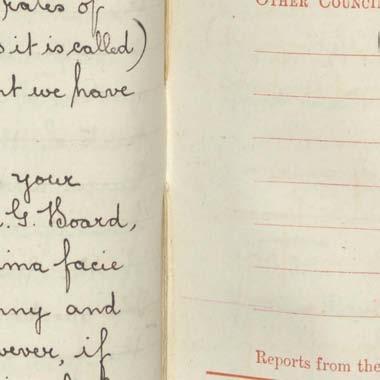 rates of
s it is called)
nt we have
your
G. Board,
ima facie
nny and
wever, if
OTHER COUNCI
Reports from the